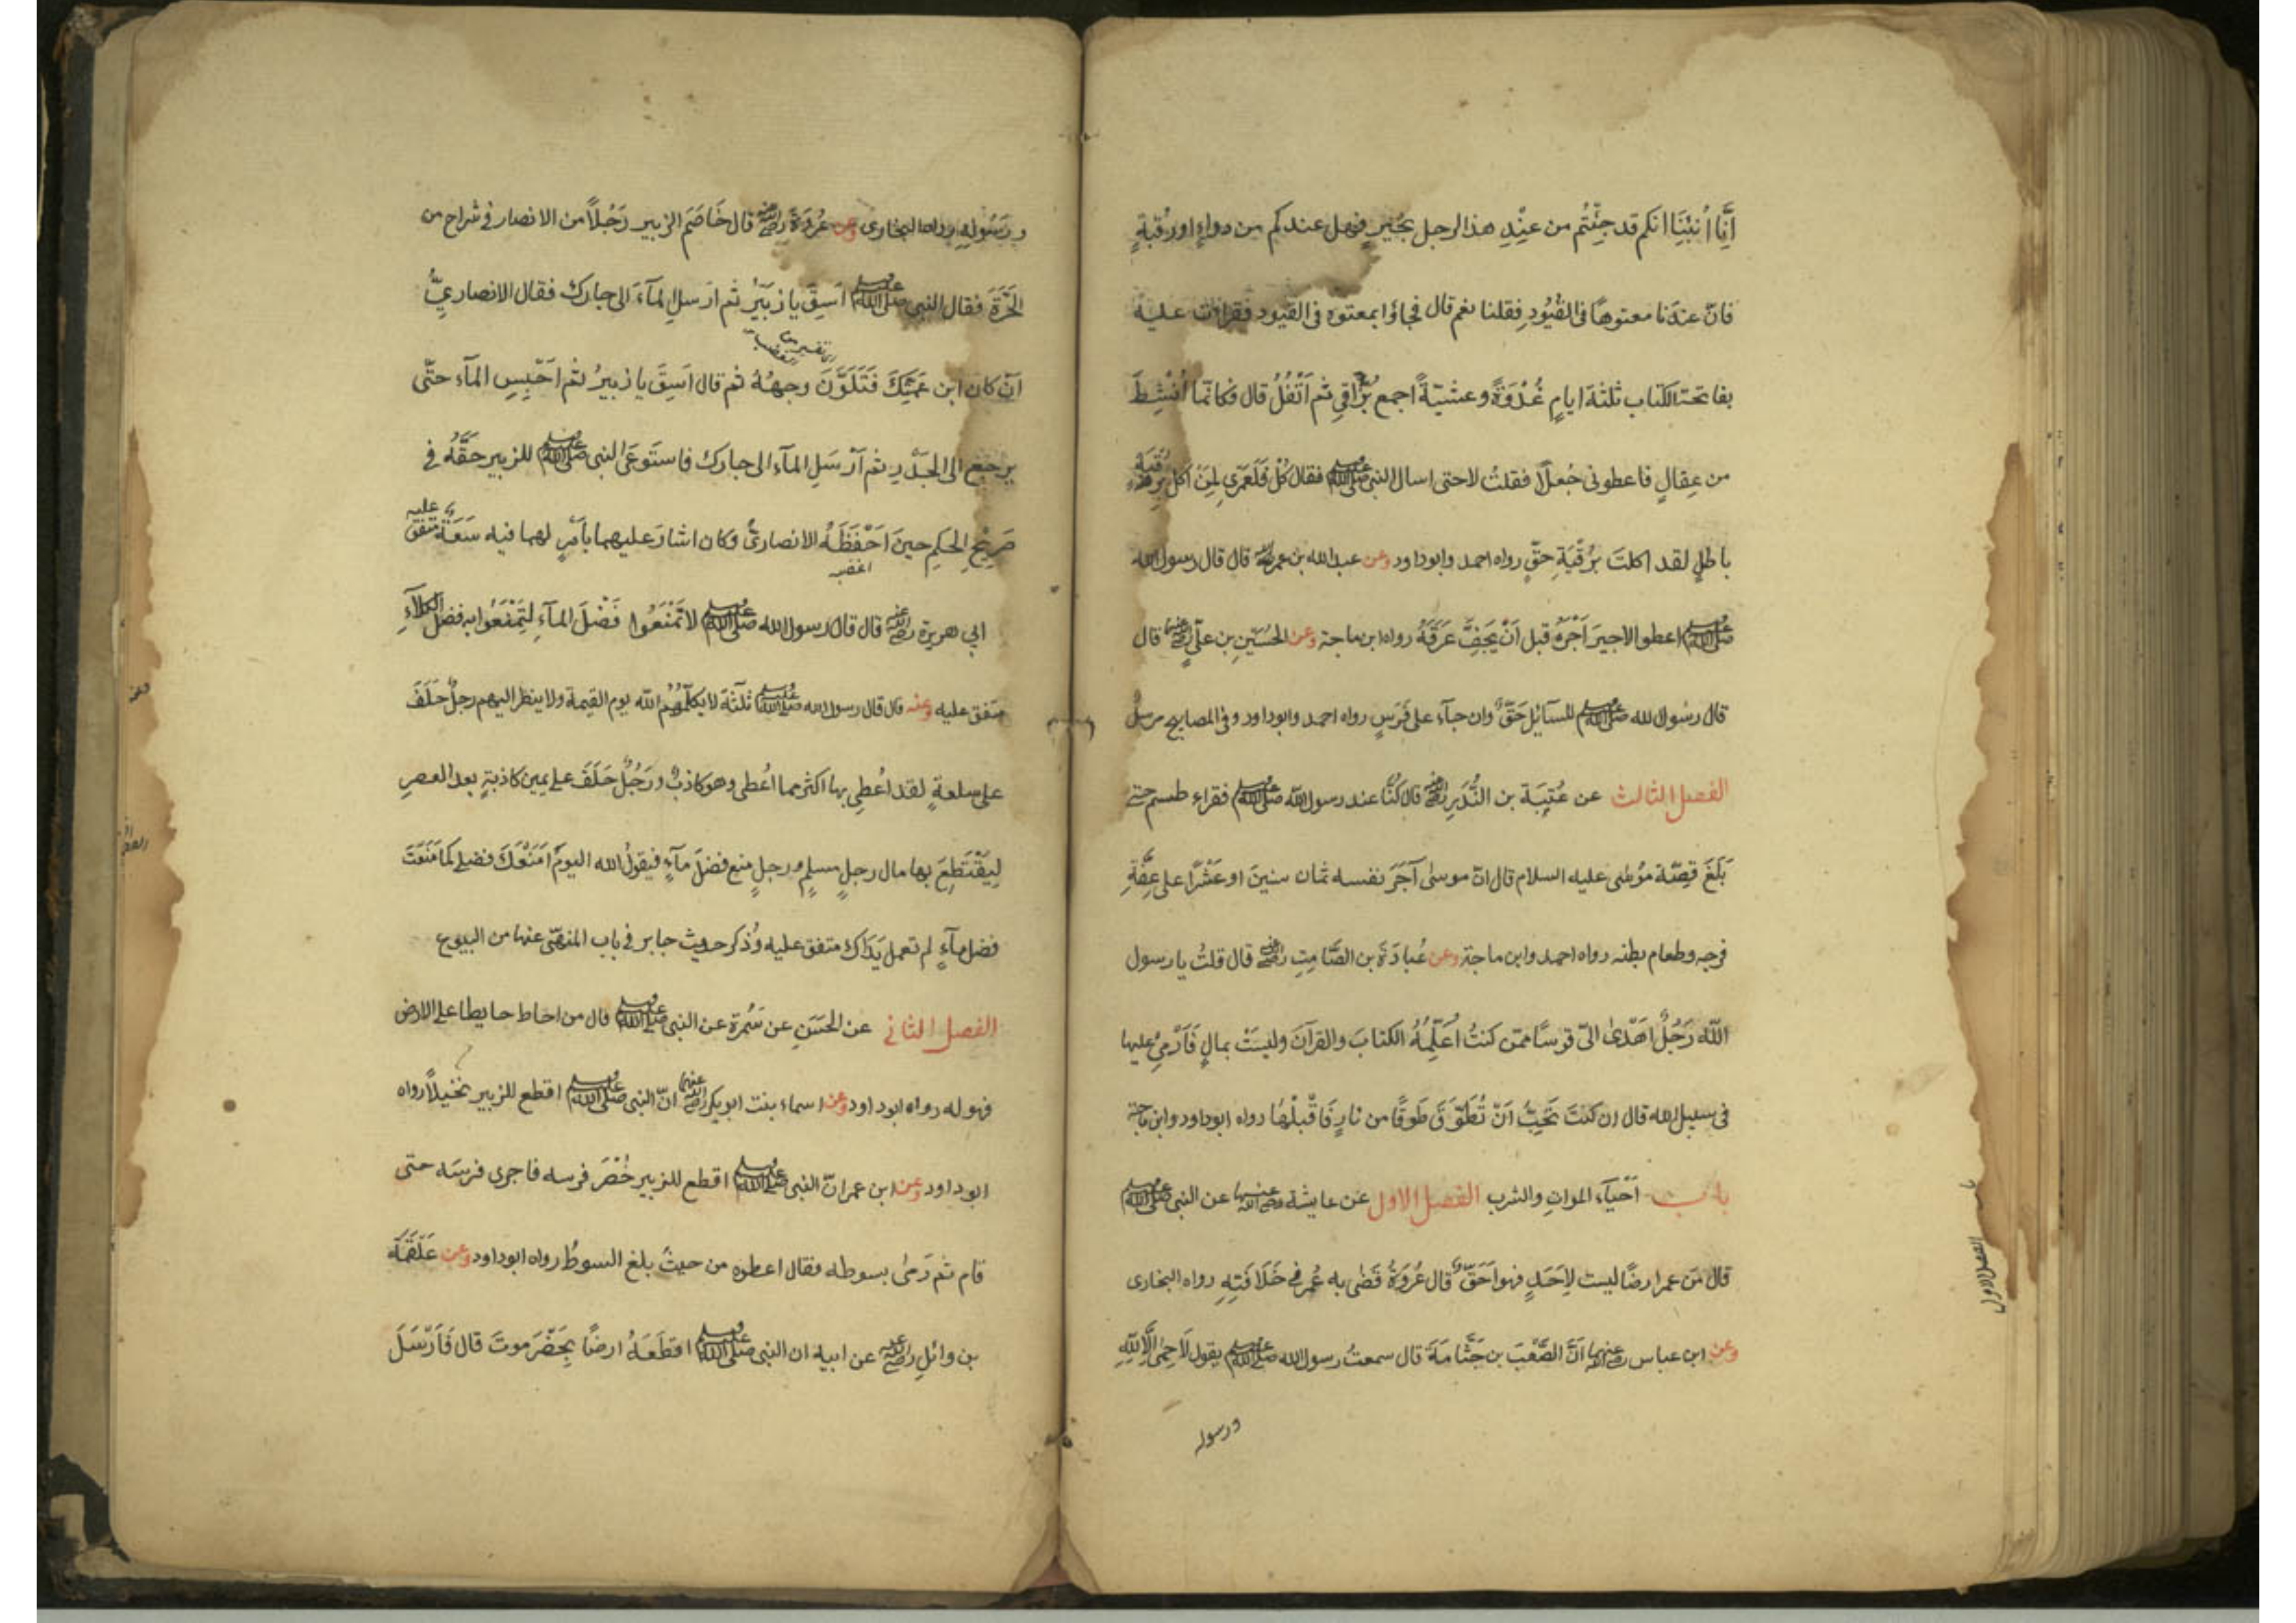 اِنَّا اُنْبِئْنَا انكم قد جِئْتُم من عِنْدِ هذا الرجل بخيرٍ فهل عندكم من دواءٍ او رُقْيَةٍ
فانّ عندَنا معتوهًا فى القُيُودِ فقلنا نعم قال فجاؤا بمعتوه فى القيود فقراءت عليه
بفاتحة الكتاب ثلثة ايامٍ غُدْوَةً وعشيّةً اجمع بُزَاقِي ثم اَتْفُلُ قال فكانّما اُنْشِطَ
من عِقالٍ فاعطونى جُعلًا فقلتُ لا حتى اسال النبى ﷺ فقال كُلْ فَلَعَمْرِى لِمَنْ اكل بِرُقْيَةِ
باطلٍ لقد اكلتَ بِرُقْيَةِ حقٍّ رواه احمد وابوداود وعن عبدالله بن عمر رضي الله عنه قال قال رسول الله
ﷺ اعطوا الاجيرَ اَجْرَهُ قبل اَنْ يَجِفَّ عَرَقُهُ رواه ابن ماجة وعن الحُسَيْنِ بن علىٍّ رضي الله عنهما قال
قال رسُول الله ﷺ للسآئِلِ حَقٌّ وان جآءَ على فَرَسٍ رواه احمد وابوداود وفى المصابيح مرسلٌ
الفصل الثالث عن عُتْبَة بن النُّدَّرِ رضي الله عنه قال كُنَّا عند رسول الله ﷺ فقراء طسم حتى
بَلَغَ قِصّة مُوسٰى عليه السلام قال انّ موسىٰ آجَرَ نفسه ثمان سنينَ او عَشْرًا على عِفَّةِ
فرجه وطعام بطنه رواه احمد وابن ماجة وعن عُبادَةَ بن الصَّامِتِ رضي الله عنه قال قلتُ يا رسول
اللّٰه رَجُلٌ اَهْدىٰ الىّ قوسًا ممّن كنتُ اُعَلِّمُهُ الكتابَ والقرآنَ وليسَتْ بمالٍ فَاَرْمِىْ عليها
فى سبيل الله قال ان كنتَ تُحِبُّ اَنْ تُطَوَّقَ طَوقًا من نارٍ فَاقْبَلْهَا رواه ابوداود وابن ماجة
باب اَحْيآءِ المواتِ والشرب الفصل الاول عن عايشة رضي الله عنها عن النبى ﷺ
قال مَن عمر ارضًا ليست لِاَحَدٍ فهو اَحَقُّ قال عُرْوَةُ قَضٰى به عُمر فى خَلَافَتِهِ رواه البخارى
وعن ابن عباس رضي الله عنهما اَنّ الصَّعْبَ بن جَثَّامَةَ قال سمعتُ رسول الله ﷺ يقول لَا حِمٰى اِلَّا لِلّٰهِ
ورسوله
باب
الفصل الاول
ورَسُولِهِ رواه البخارى وعن عُرْوَةَ رضي الله عنه قال خَاصَمَ الزبير رَجُلًا من الانصار فى شراجٍ من
الحَرَّةِ فقال النبى ﷺ اَسِقِ يا زبَيْرُ ثم اَرْسِلِ المآءَ الى جارك فقال الانصارىُّ
اَنْ كان ابن عَمَّتِكَ فَتَلَوَّنَ وجههُ ثم قال اَسِقِ يا زبيرُ ثم احْبِسِ المآءَ حتّى
يرجعَ الى الجَدْرِ ثم اَرْسِلِ المآءَ الى جارك فاستَوعَى النبى ﷺ للزبير حَقَّهُ فى
صَرِيْحِ الحكمِ حينَ اَحْفَظَهُ الانصارىُّ وكان اشارَ عليهما بأمرٍ لهما فيه سَعَةٌ متفق عليه
اغضبه
ابي هريرة رضي الله عنه قال قال رسول الله ﷺ لا تَمْنَعُوا فَضْلَ المآءِ لِتَمْنَعُوا به فضلَ الكلاءِ
متفق عليه وعنه قال قال رسول الله ﷺ ثلٰثة لا يكلّمُهُم اللّٰه يوم القيمة ولا ينظر اليهم رجلٌ حَلَفَ
على سلعةٍ لقد اُعْطِى بها اكثر مما اُعْطى وهو كاذبٌ ورَجُلٌ حَلَفَ على يمين كاذبةٍ بعد العصرِ
لِيَقْتَطِعَ بها مال رجلٍ مسلمٍ ورجلٍ منع فضلَ مآءٍ فيقولُ الله اليومَ اَمْنَعُكَ فضلى كما مَنَعْتَ
فضل مآءٍ لم تعمل يَدَاك متفق عليه وذُكر حديث جابر فى باب المنهىّ عنها من البيوع
الفصل الثانى عن الحَسَنِ عن سَمُرة عن النبى ﷺ قال من احاط حايطا على الارض
فهو له رواه ابوداود وعن اسماء بنت ابوبكر رضي الله عنهما انّ النبى ﷺ اقطع للزبير نخيلًا رواه
ابوداود وعن ابن عمر انّ النبى ﷺ اقطع للزبير حُضْرَ فرسه فاجرى فرسَه حتى
قام ثم رَمىٰ بسوطه فقال اعطوه من حيثُ بلغ السوطُ رواه ابوداود وعن عَلْقَمَة
بن وائلٍ رضي الله عنه عن ابيه ان النبى ﷺ اقطَعَهُ ارضًا بِحَضْرَموتَ قال فَاَرْسَلَ